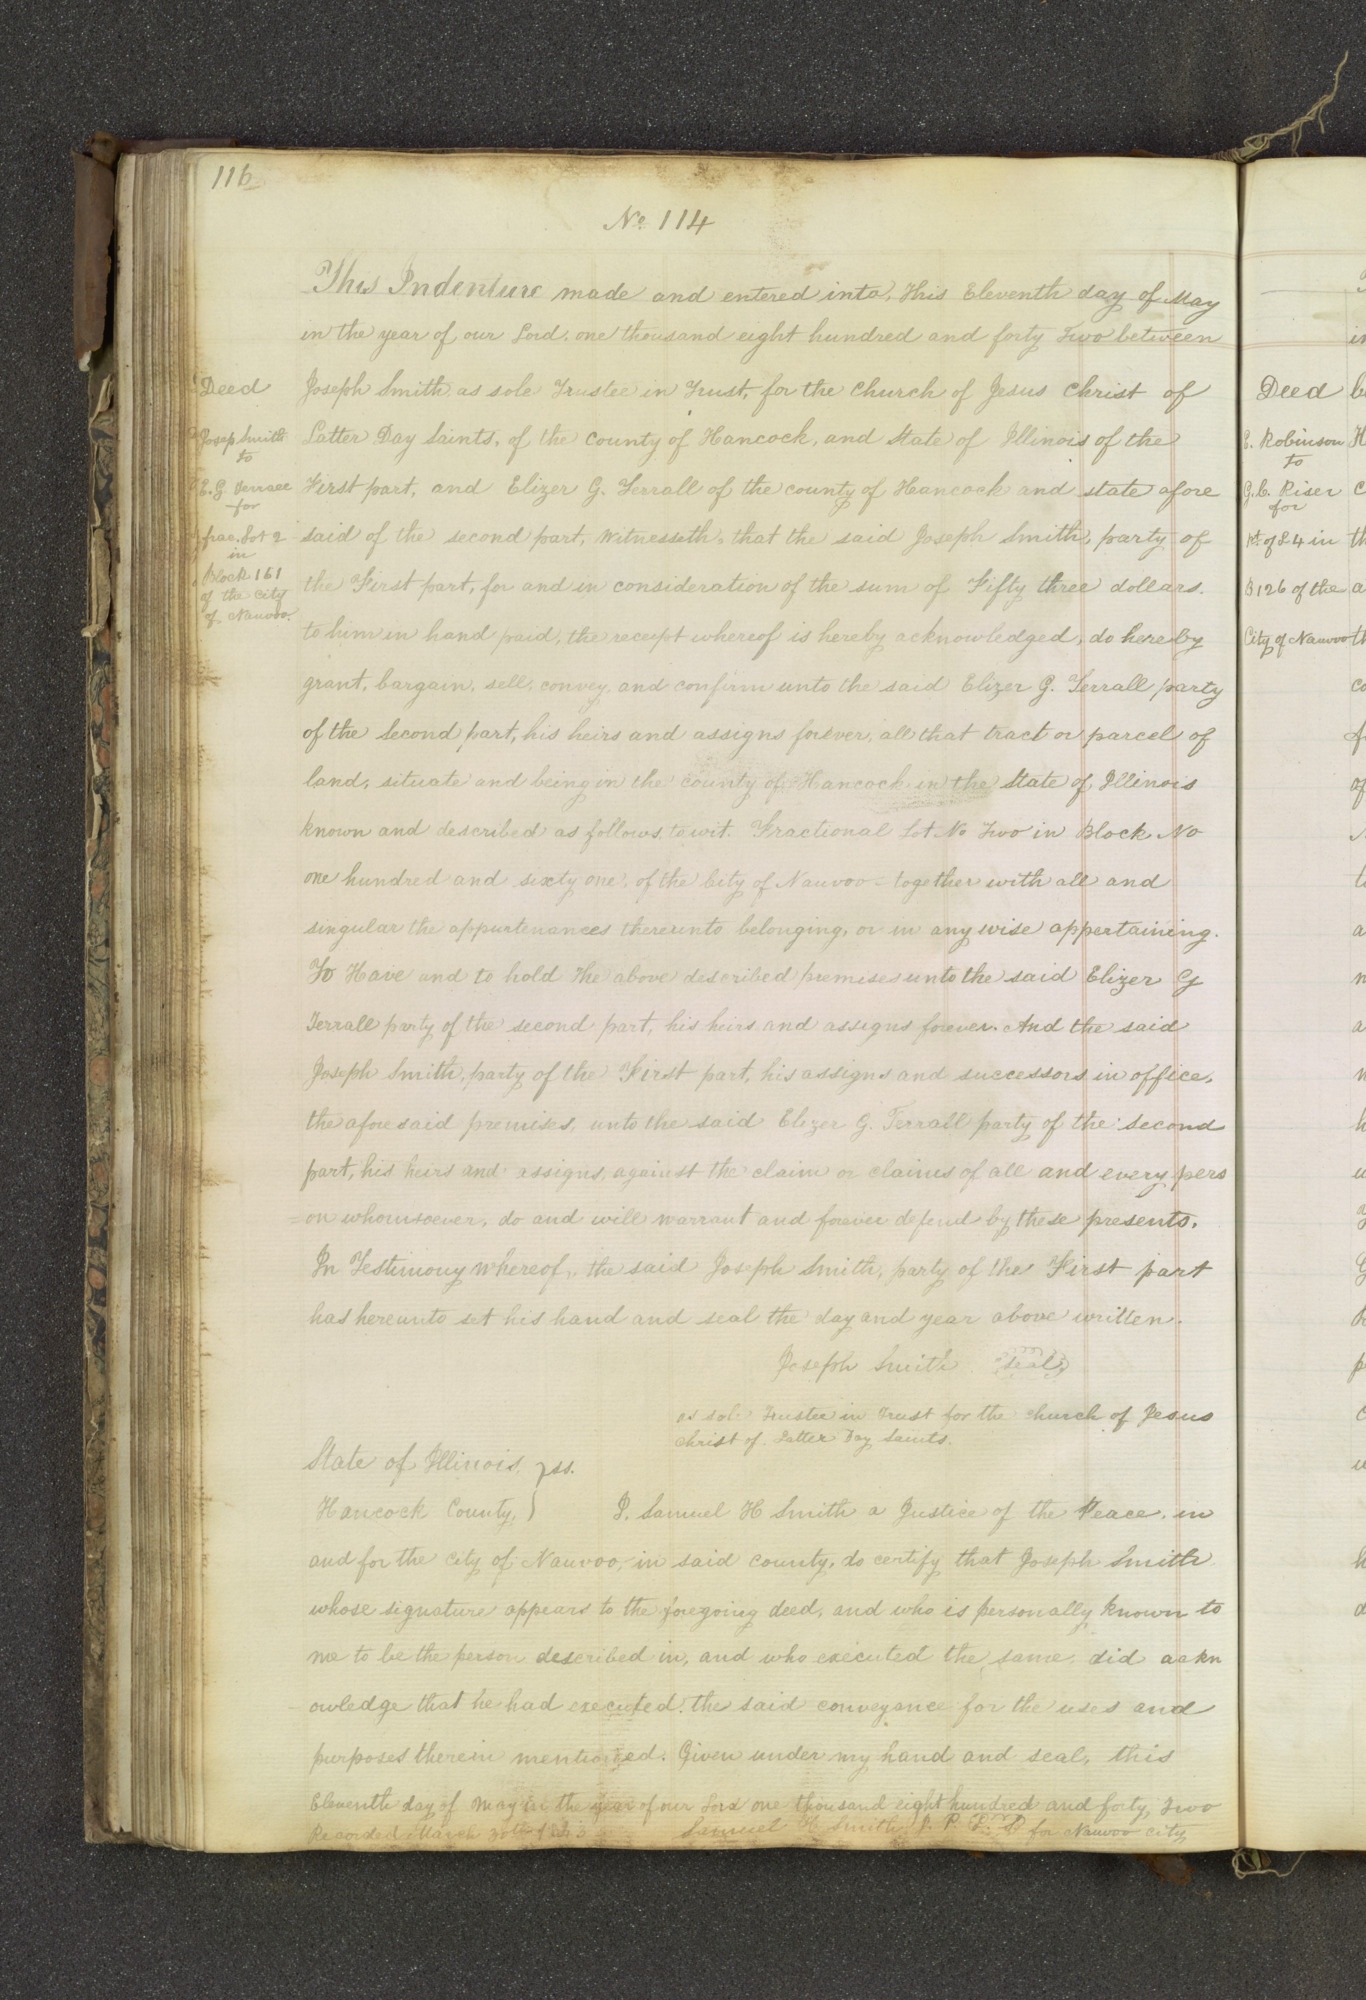 116
No 114
This Indenture made and entered into, This Eleventh day of May
in the year of our Lord. one thousand eight hundred and forty Two between
Joseph Smith as sole Trustee in Trust, for the Church of Jesus Christ of
Latter Day Saints, of the County of Hancock, and State of Illinois of the
First part, and Elizer G. Terrall of the county of Hancock and state afore
said of the second part, Witnesseth, that the said Joseph Smith, party of
the First part, for and in consideration of the sum of Fifty three dollars.
to him in hand paid, the receipt whereof is hereby acknowledged, do hereby
grant, bargain, sell, convey, and confirm unto the said Elizer G. Terrall party
of the Second part, his heirs and assigns forever, all that tract or parcel of
land, situate and being in the county of Hancock in the State of Illinois
known and described as follows, to wit. Fractional Lot No Two in Block No
one hundred and sixty one, of the City of Nauvoo = together with all and
singular the appurtenances thereunto belonging, or in any wise appertaining.
To Have and to hold The above described premises unto the said Elizer G
Terrall party of the second part, his heirs and assigns forever. And the said
Joseph Smith, party of the First part, his assigns and successors in office,
the afore said premises, unto the said Elizer G. Terrall party of the second
part, his heirs and assigns, against the claim or claims of all and every pers
=on whomsoever, do and will warrant and forever defend by these presents.
In Testimony Whereof, the said Joseph Smith, party of the First part
has hereunto set his hand and seal the day and year above written.
Joseph Smith seal
as sole Trustee in Trust for the church of Jesus
Christ of Latter Day Saints.
State of Illinois, } ss.
Hancock County, } I, Samuel H Smith a Justice of the Peace, in
and for the city of Nauvoo, in said county, do certify that Joseph Smith
whose signature appears to the foregoing deed, and who is personally known to
me to be the person described in, and who executed the same, did aakn
owledge that he had executed the said conveyance for the uses and
purposes therein mentioned. Given under my hand and seal, this
Eleventh day of May in the year of our Lord one thousand eight hundred and forty, Two
Recorded March 30th Samuel H Smith J. P. for Nauvoo city
Deed
Josep Smith
to
E. G.
for
frac. Lot 2
in
Block 161
of the city
of Nauvoo.
Deed
E. Robinson
to
G. C. Riser
for
Pt of L 4 in
B 126 of the
City of Nauvoo